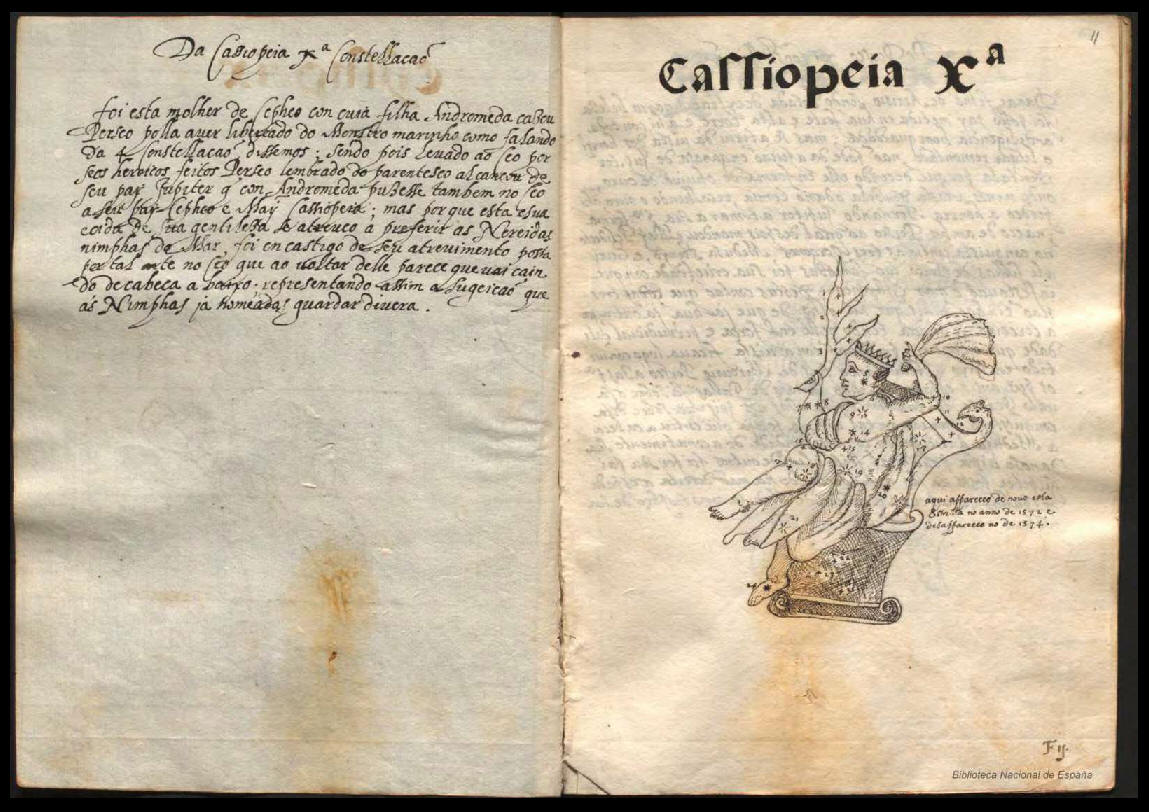 Da Cassiopeia Xª Constellacaõ
foi esta molher de Cepheo con cuia filha Andromeda casou
Perseo polla aver libertado do Monstro marinho como falando
da 4 Constellacaõ dissemos; sendo pois levado ao Ceo por
seos heroicos feitos Perseo lembrado do parentesco alcancou de
seu pay Jupiter q con Andromeda puzesse tambem no Ceo
a seu pay Cepheo e May Cassiopeia; mas porque esta
de sua gentileza se atreveo a preferir as Nereidas
nimphas do Mar, foi en castigo de seu atrevimento posta
por tal arte no Ceo que ao voltar delle parece que vai cain
do de cabeca a baixo, representando assim a sugeicaõ que
as Nimphas ja nomeadas guardar divera.
11
Cassiopeia Xª
aqui appareceo de novo
no anno de 1572 e
desappareceo no de 1574.
F ij.
Biblioteca Nacional de España